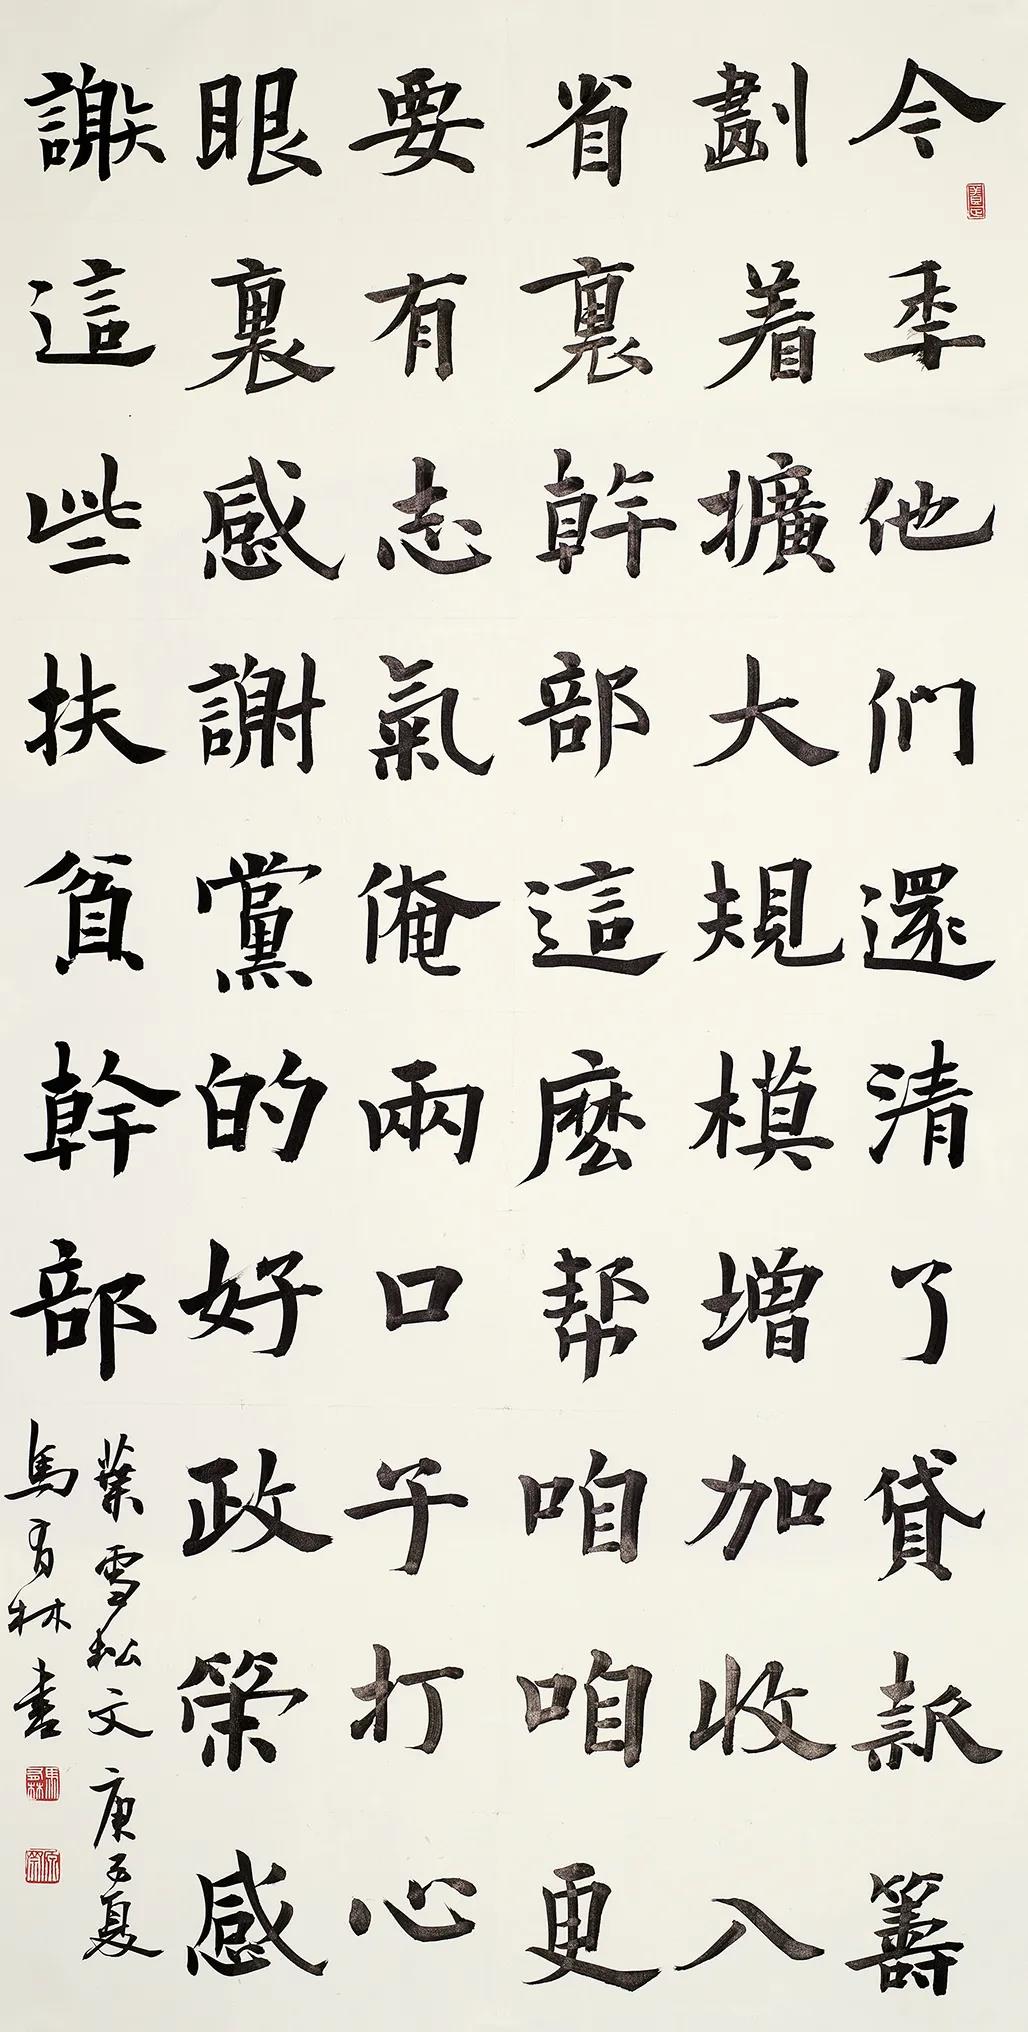 今季他們還清了貸款籌
劃着擴大規模增加收入
省裏幹部這麼帮咱咱更
要有志氣俺兩口子打心
眼裏感謝黨的好政策感
謝這些扶貧幹部
葉雪松文 庚子夏
馬有林書